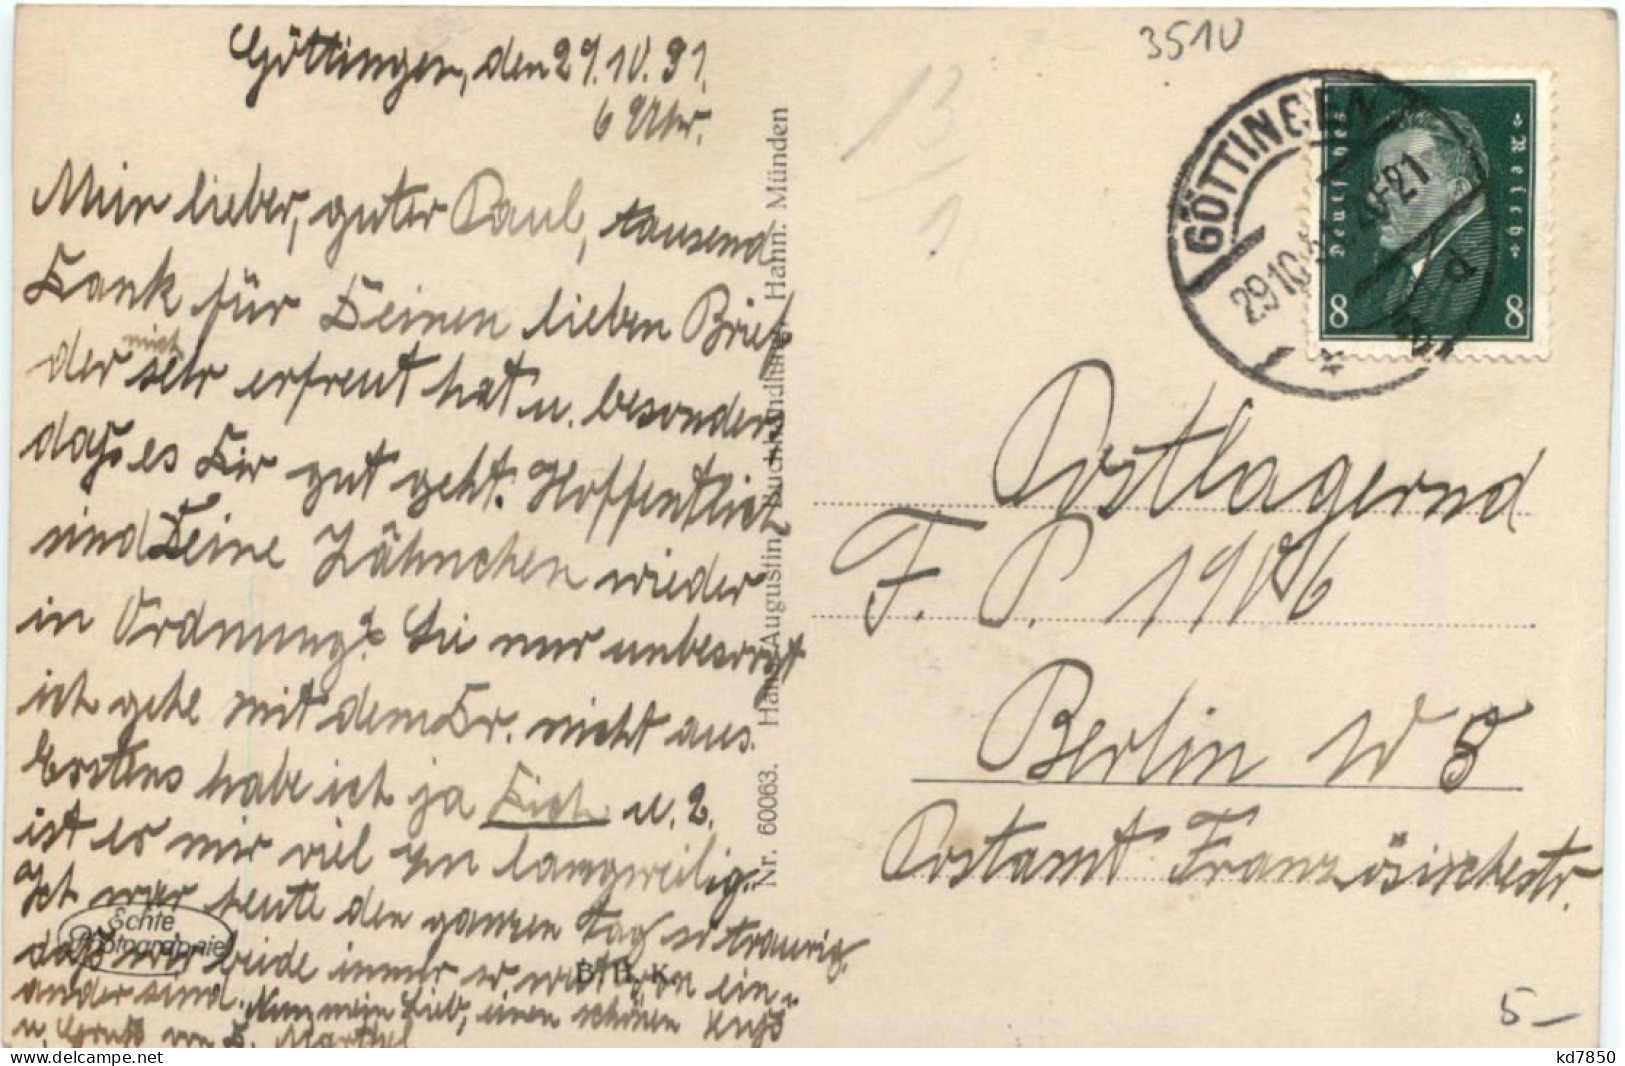 Göttingen, den 29.10.31.
6 Uhr.
Mein lieber, guter Paul, tausend
Dank für Deinen lieben Brief
der mich sehr erfreut hat u. besonders
daß es Dir gut geht. Hoffentlich
sind Deine Zähnchen wieder
in Ordnung? Sei nur unbesorgt
ich gehe mit dem Dr. nicht aus.
Erstens habe ich ja Dich u. 2.
ist es mir viel zu langweilig.
Ich war heute den ganzen Tag so traurig,
daß wir beide immer so weit von ein-
ander sind. Nun mein Lieb, einen schönen Kuß
u. Gruß von D.
Echte
Photographie
B. H. K.
Nr. 60063. Hans Augustin, Buchhandlung, Hann. Münden
3510
13
1
GÖTTINGEN
29.10.31 20-21
Deutsches Reich
8 8
Postlagernd
F. P. 1906
Berlin W 8
Postamt Französischestr.
5-
kd7850